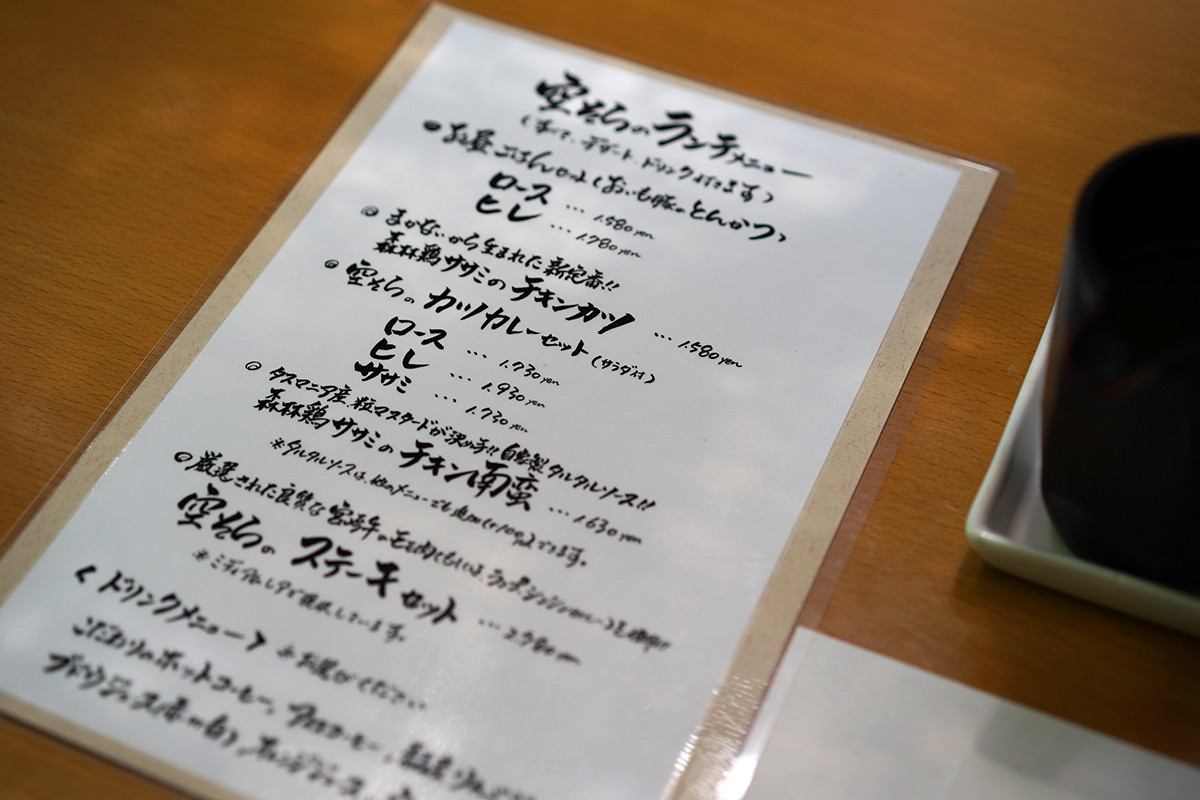 空そらのランチメニュー
(すべて、デザート、ドリンク付てます)
お昼ごはんセット(おいも豚のとんかつ)
ロース … 1.580yen
ヒレ … 1.780yen
まかないから生まれた新定番!!
森林鶏ササミのチキンカツ … 1.580yen
空そらのカツカレーセット(サラダ付)
ロース … 1.730yen
ヒレ … 1.930yen
ササミ … 1.730yen
タスマニア産、粒マスタードが決め手!!自家製タルタルソース!!
森林鶏ササミのチキン南蛮 … 1.630yen
※タルタルソースは、他のメニューでも追加(+100yen)できます。
厳選された良質な宮崎牛のモモ肉もしくは、
空そらのステーキセット … 2.780yen
※ミディアムレアで提供しています。
<ドリンクメニュー> ※お選びください
こだわりのホットコーヒー、アイスコーヒー、
ブドウジュース(赤or白)、オレンジジュース、